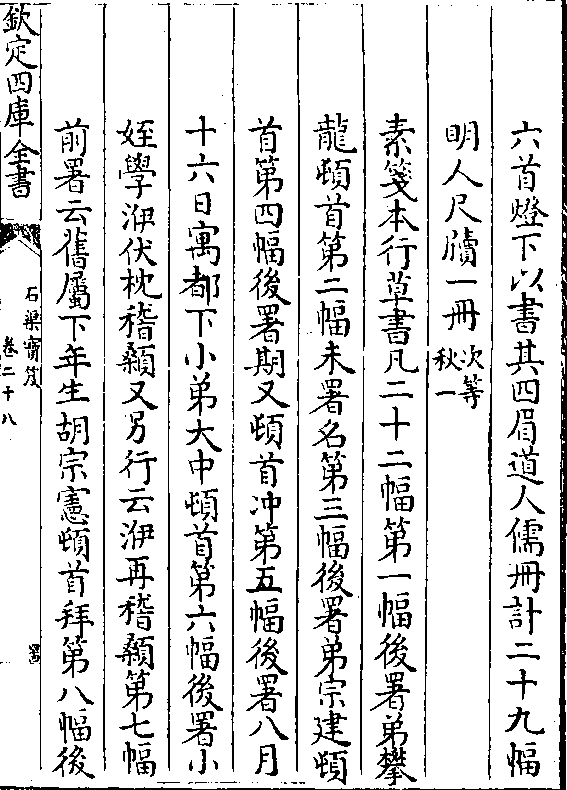 六首燈下以書其四眉道人儒冊計二十九幅
明人尺牘一冊 次等 秋一
素箋本行草書凡二十二幅第一幅後署弟攀
龍頓首第二幅未署名第三幅後署弟宗建頓
首第四幅後署期又頓首冲第五幅後署八月
十六日寓都下小弟大中頓首第六幅後署小
姪學洢伏枕稽顙又另行云洢再稽顙第七幅
前署云舊屬下年生胡宗憲頓首拜第八幅後
欽定四庫全書
石渠寶笈
卷二十八